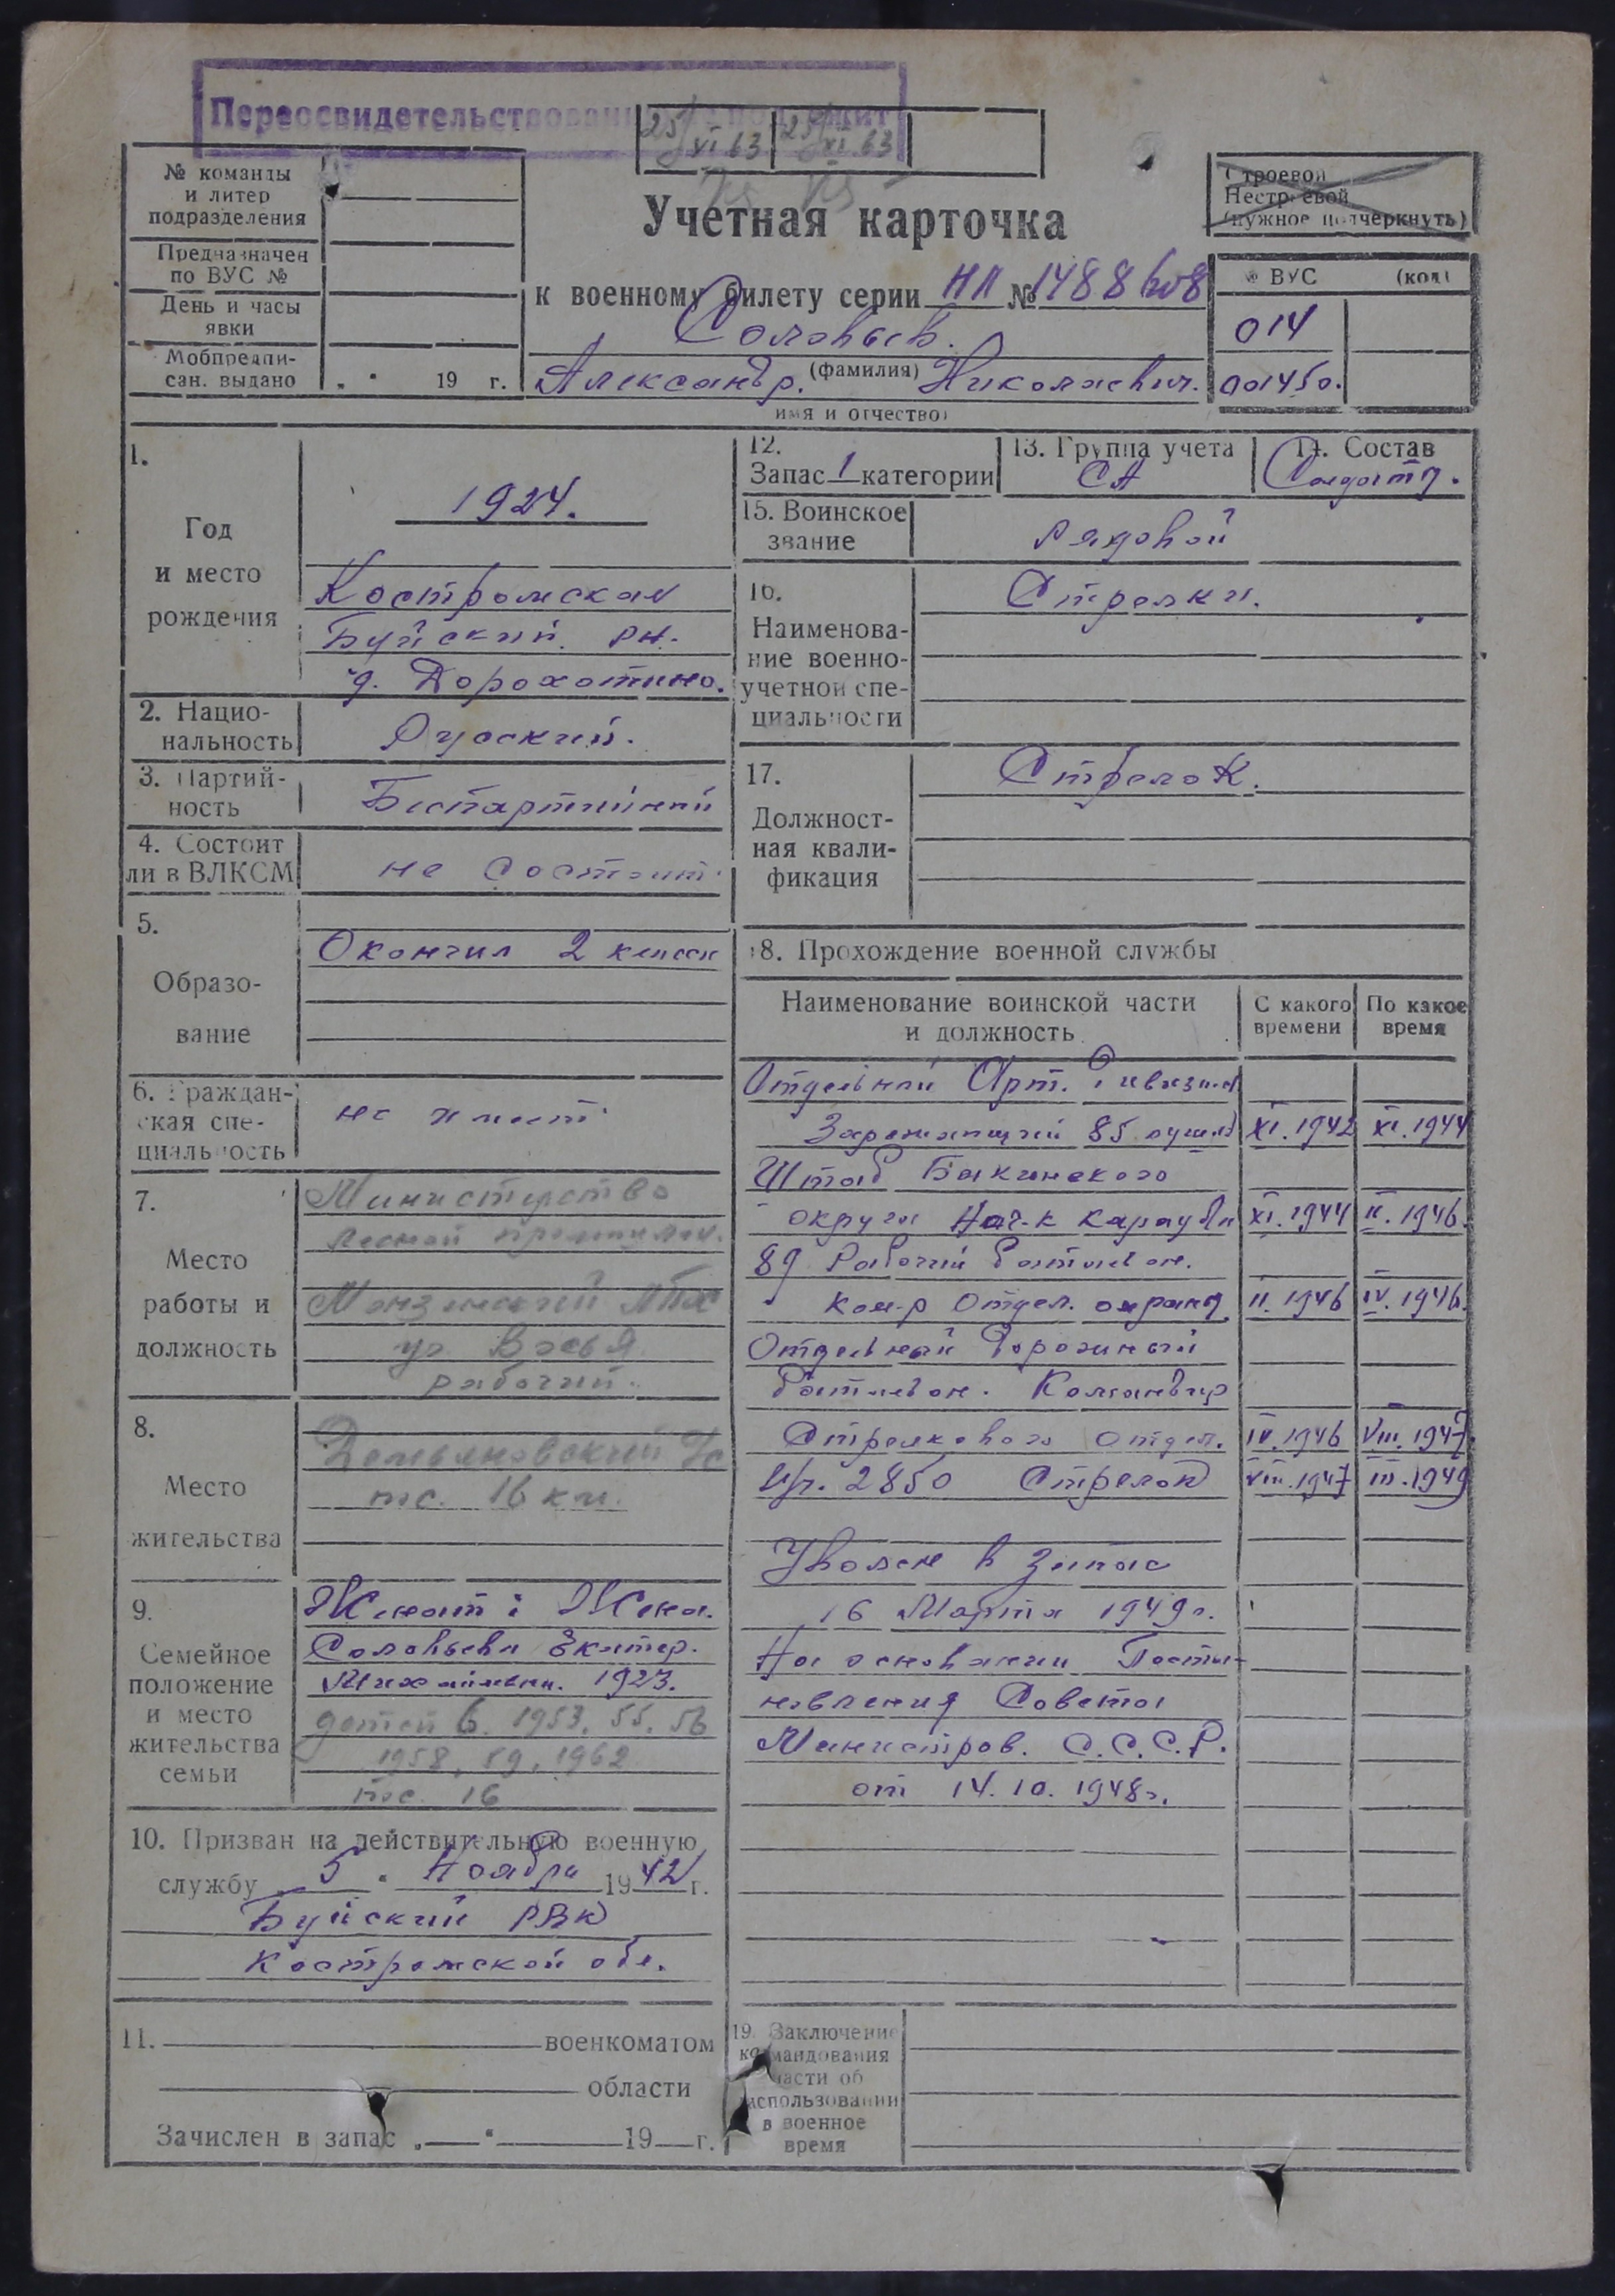 Переосвидетельствован
25/VI 63
25/XI 63
№ команды
и литер
подразделения
Предназначен
по ВУС №
День и часы
явки
Мобпредпи-
сан. выдано „ “ 19 г.
Строевой
Нестроевой
(нужное подчеркнуть)
Учетная карточка
к военному билету серии НЛ №1488608
Соловьев.
(фамилия)
Александр. Николаевич.
имя и отчество)
№ ВУС (код)
014
001450.
1.
Год
и место
рождения
1924.
Костромская
Буйский рн.
д. Дорохотино.
2. Нацио-
нальность
Русский.
3. Партий-
ность
Беспартийный
4. Состоит
ли в ВЛКСМ
не состоит.
5.
Образо-
вание
Окончил 2 класса
6. Граждан-
ская спе-
циальность
не имеет.
7.
Место
работы и
должность
Министерство
лесной промышлен.
Монзенский ЛПХ
рабочий.
8.
Место
жительства
пос. 16 км.
9.
Семейное
положение
и место
жительства
семьи
Женат: Жена.
Соловьева Екатер.
Михайловна. 1923.
детей 6. 1953, 55, 56
1958, 59, 1962
пос. 16
10. Призван на действительную военную
службу „ 5 “ Ноября 1942 г.
Буйский РВК
Костромской обл.
11. военкоматом
области
Зачислен в запас „ “ 19 г.
12.
Запас 1 категории
13. Группа учета
СА
14. Состав
Солдаты.
15. Воинское
звание
Рядовой
16.
Наименова-
ние военно-
учетной спе-
циальности
Стрелки.
17.
Должност-
ная квали-
фикация
Стрелок.
18. Прохождение военной службы
Наименование воинской части
и должность
С какого
времени
По какое
время
Отдельный Арт. Дивизион
Заряжающий 85 XI.1942 XI.1944
Штаб Бакинского
округа Нач-к караула XI.1944 II.1946.
89 Рабочий батальон.
ком-р Отдел. охраны II.1946 IV.1946.
Отдельный Дорожный
батальон. Командир
Стрелкового отдел. IV.1946 VIII.1947.
2850 Стрелок VIII.1947 III.1949
Уволен в запас
16 Марта 1949г.
На основании Поста-
новления Совета
Министров. С.С.С.Р.
от 14.10.1948г.
19. Заключение
командования
части об
использовании
в военное
время